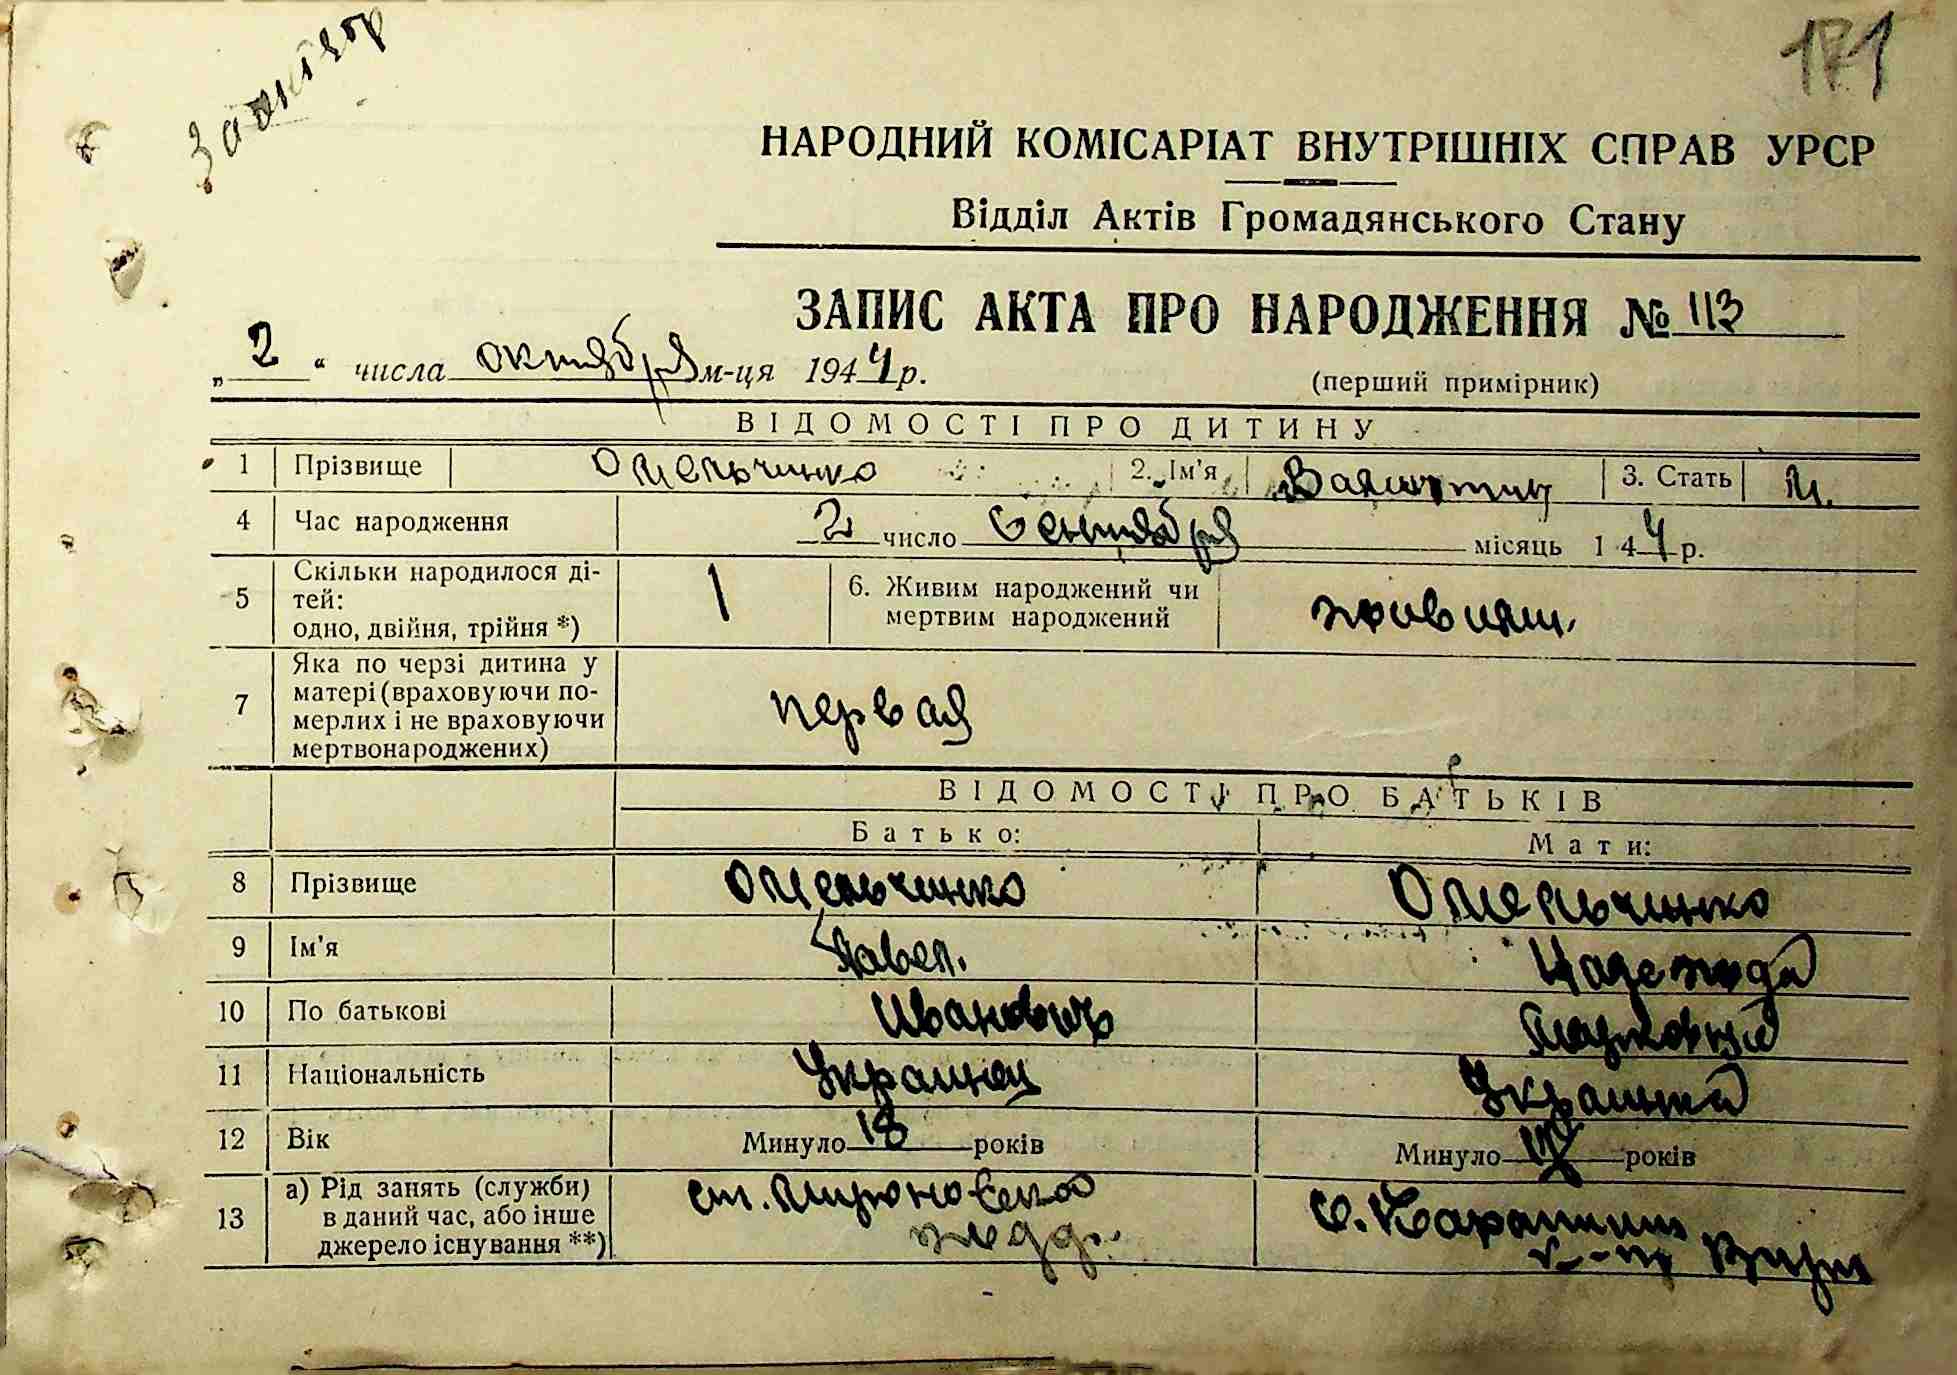 171
НАРОДНИЙ КОМІСАРІАТ ВНУТРІШНІХ СПРАВ УРСР
Відділ Актів Громадянського Стану
ЗАПИС АКТА ПРО НАРОДЖЕННЯ № 113
„ 2 “ числа октября м-ця 1944 р.
(перший примірник)
ВІДОМОСТІ ПРО ДИТИНУ
1 Прізвище Омельченко 2. Ім'я Валентин 3. Стать м.
4 Час народження 2 число сентября місяць 1 44 р.
5 Скільки народилося ді-
тей:
одно, двійня, трійня *) 1
6. Живим народжений чи
мертвим народжений живым.
7 Яка по черзі дитина у
матері (враховуючи по-
мерлих і не враховуючи
мертвонароджених) первая
ВІДОМОСТІ ПРО БАТЬКІВ
Батько: Мати:
8 Прізвище Омельченко Омельченко
9 Ім'я Павел. Надежда
10 По батькові Иванович Марковна
11 Національність Украинец Украинка
12 Вік Минуло 18 років Минуло років
13 а) Рід занять (служби)
в даний час, або інше
джерело існування **)
ст. Мироновка